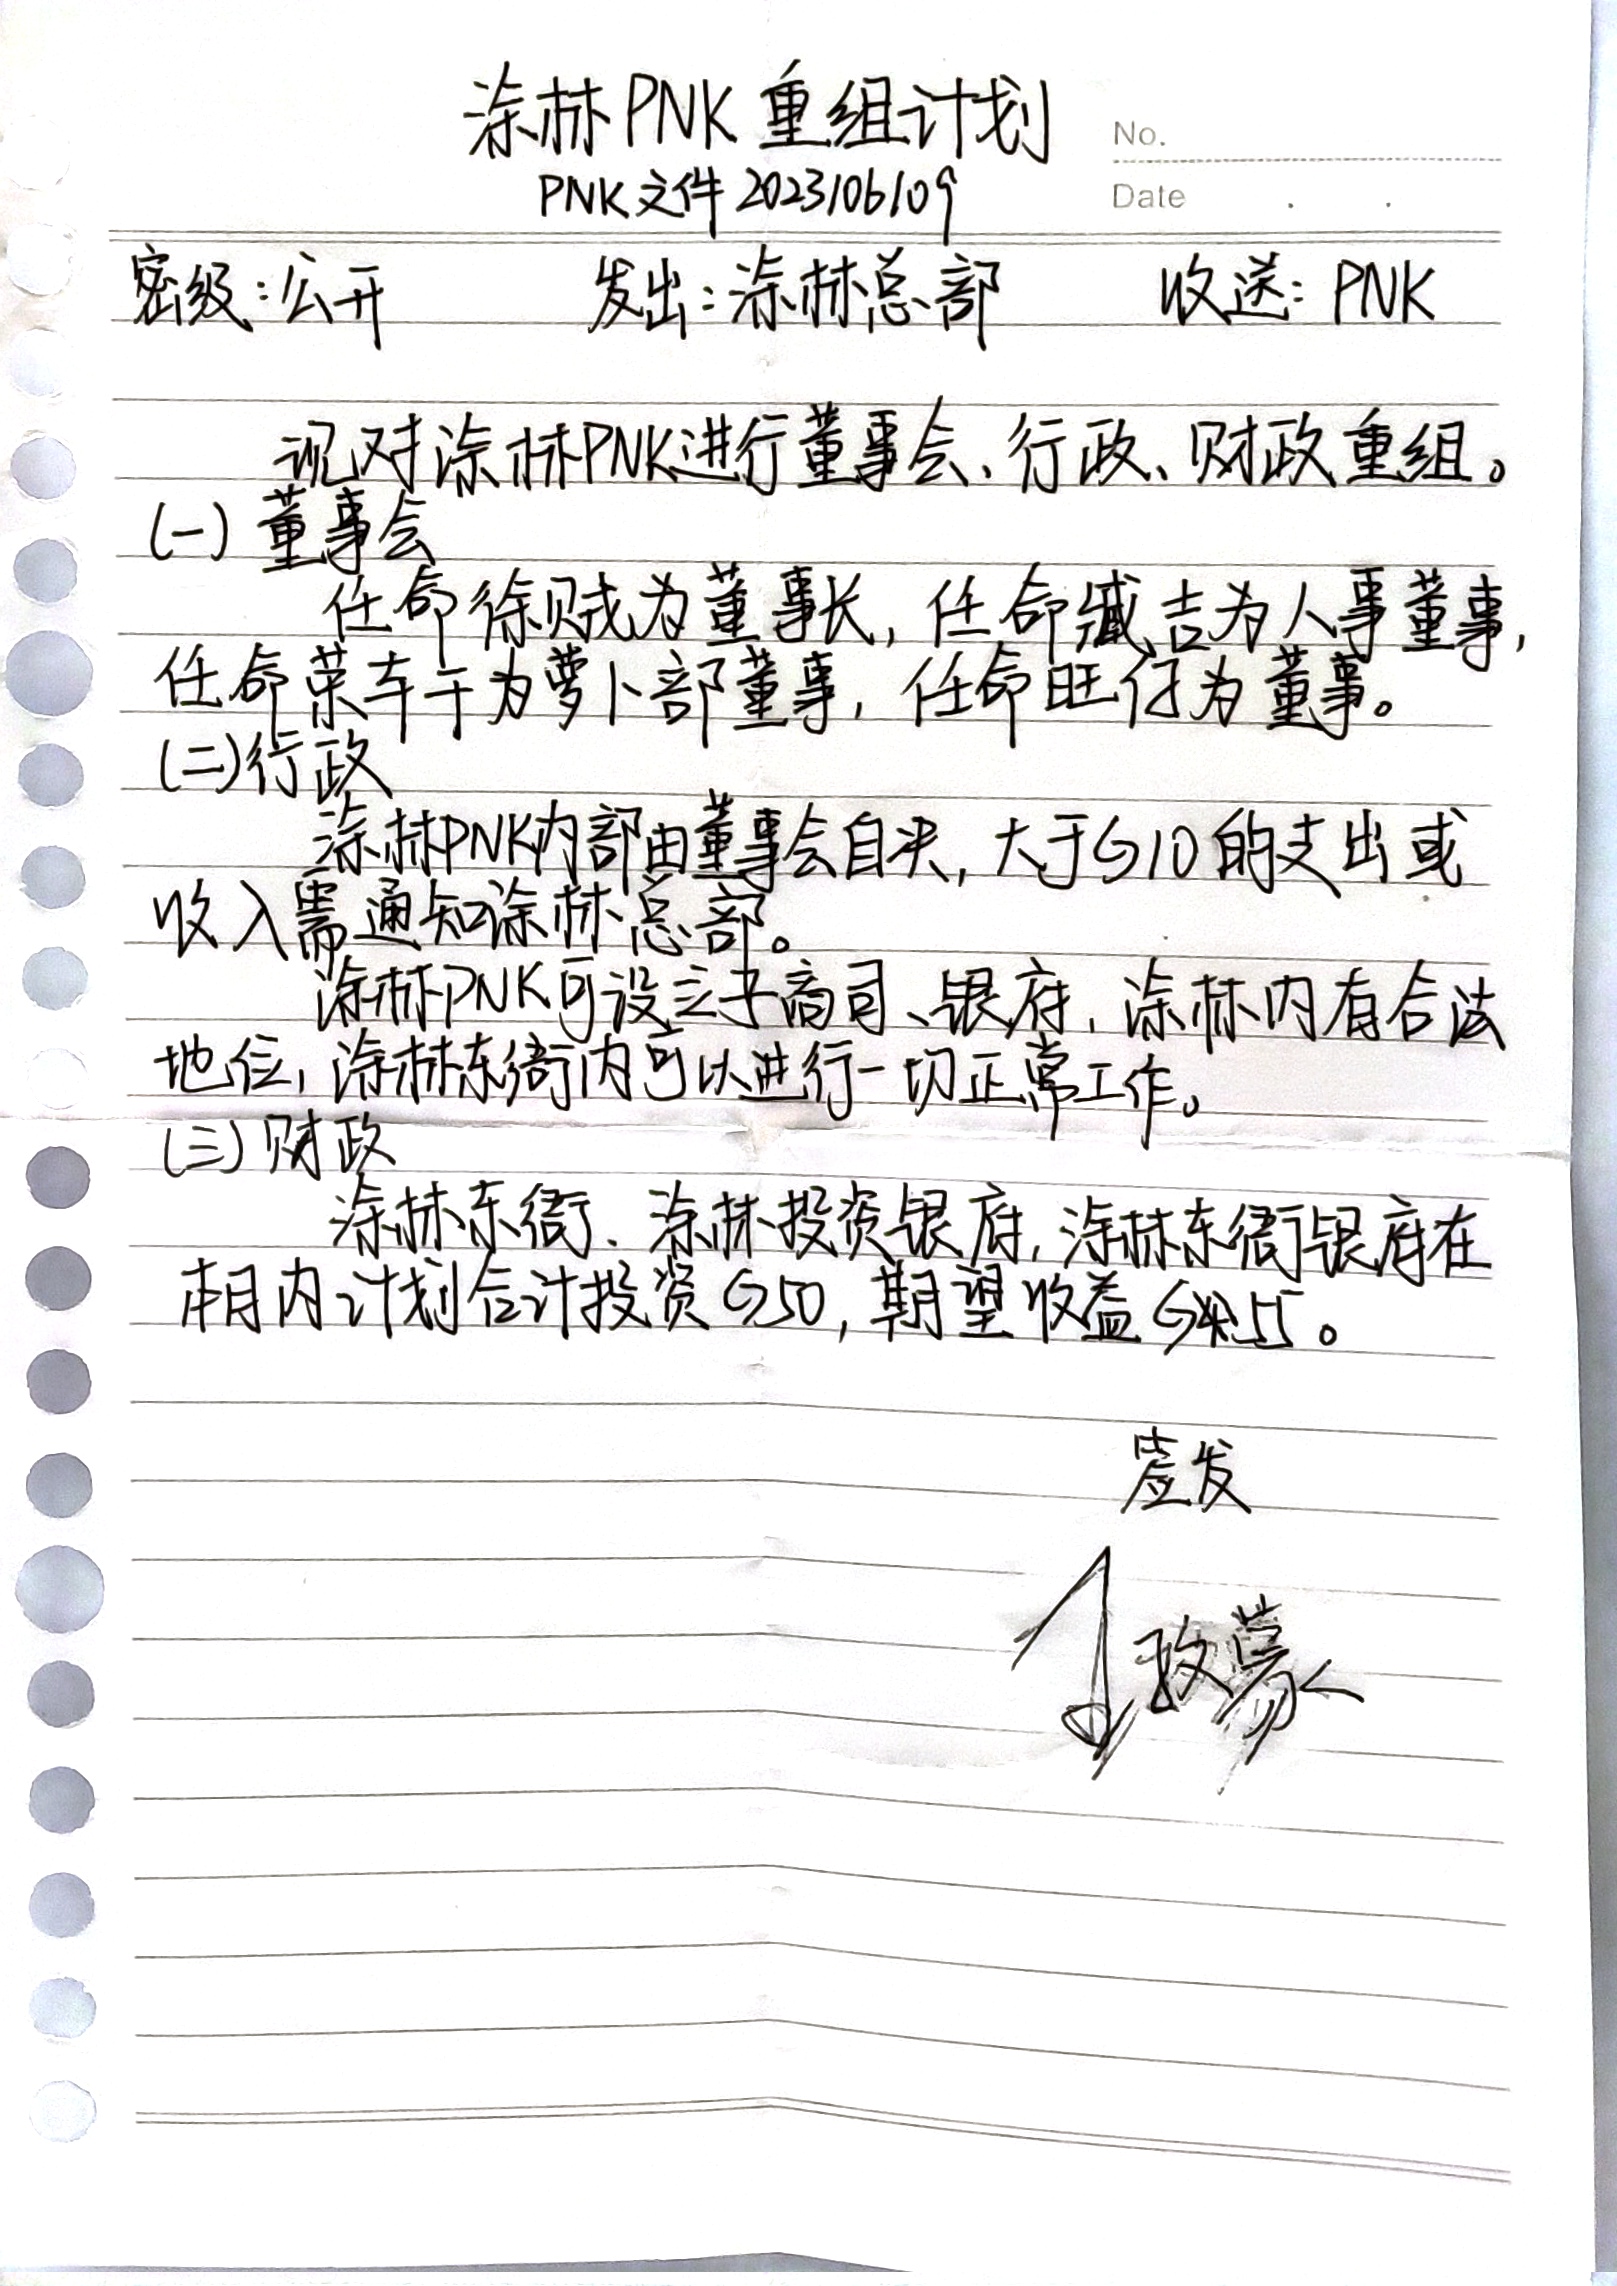 涂林PNK重组计划
No.
PNK文件2023/06/09
Date . .
密级:公开 发出:涂林总部 收送:PNK
现对涂林PNK进行董事会、行政、财政重组。
(一)董事会
任命徐贼为董事长,任命臧吉为人事董事,
任命菜车干为萝卜部董事,任命旺仔为董事。
(二)行政
涂林PNK内部由董事会自决,大于G10的支出或
收入需通知涂林总部。
涂林PNK可设立子商司、银府,涂林内有合法
地位,涂林东衙内可以进行一切正常工作。
(三)财政
涂林东衙、涂林投资银府,涂林东衙银府在
本月内计划合计投资G50,期望收益G55。
发
政蒙